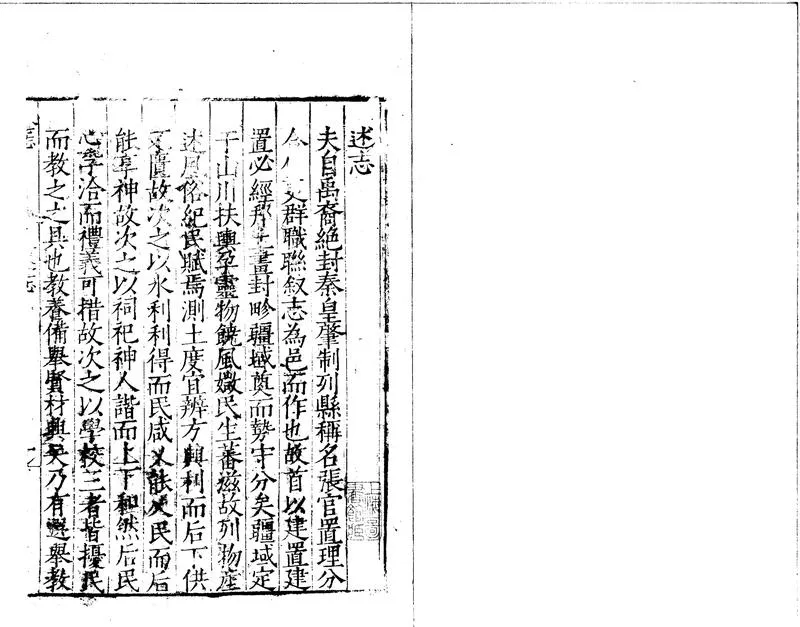 述志
夫自禹裔絶封秦皇肇制列縣稱名張官置理分
群職聯叙志為邑而作也故首以建置建
置必經郡土畫封畛疆域奠而勢守分矣疆域定
于山川扶輿孕靈物饒風媺民生蕃滋故列物産
述風俗紀民賦焉測土度宜辨方興利而后下供
不匱故次之以水利利得而民咸乂能乂民而后
能享神故次之以祠祀神人諧而上下和然后民
心孚洽而禮義可措故次之以學校三者皆擾民
而教之之具也教養備舉賢材興矣乃有選舉教
志